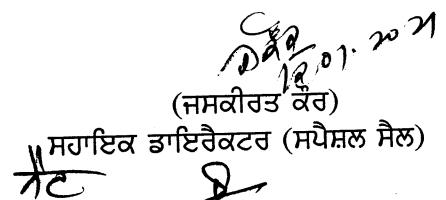 12.01.2021
(ਜਸਕੀਰਤ ਕੌਰ)
ਸਹਾਇਕ ਡਾਇਰੈਕਟਰ (ਸਪੈਸ਼ਲ ਸੈਲ)